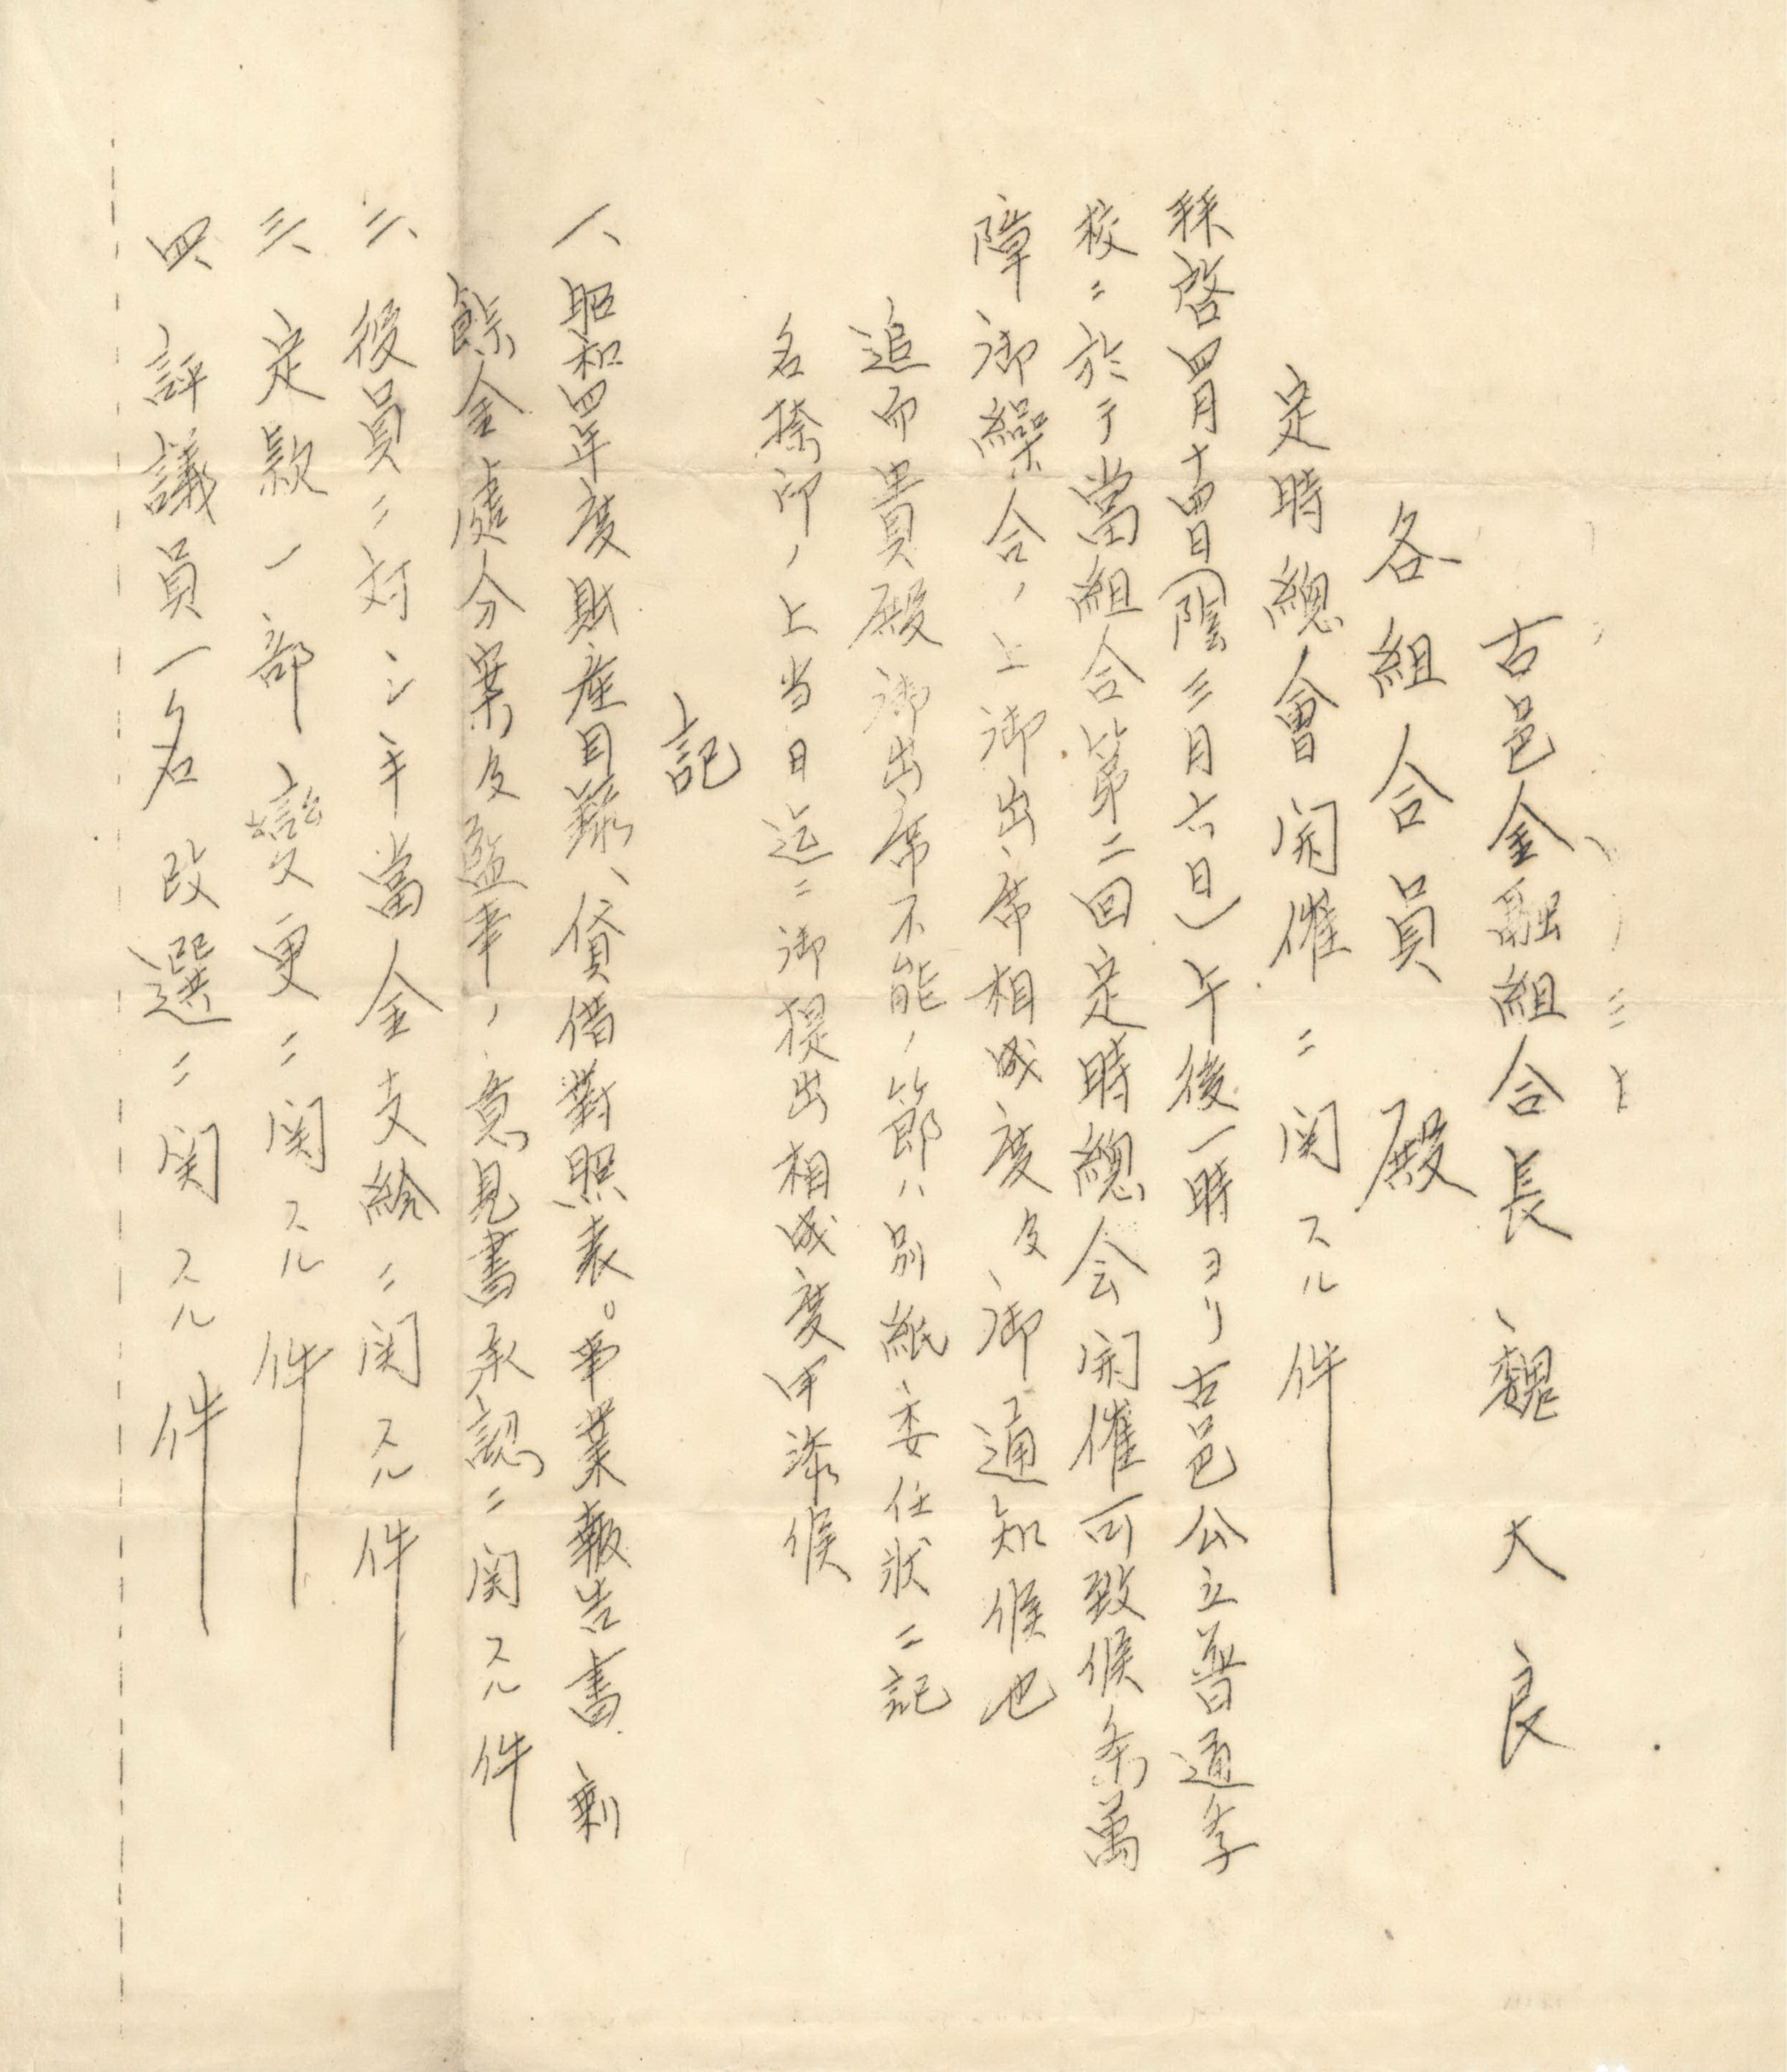 古邑金融組合長 魏大良
各組合員 殿
定時總會開催ニ関スル件
拜啓四月十四日(陰三月六日)午後一時ヨリ古邑公立普通学
校ニ於テ當組合第二回定時總会開催可致候条萬
障御繰合ノ上御出席相成度及御通知候也
追而貴殿御出席不能ノ節ハ別紙委任狀ニ記
名捺印ノ上当日迄ニ御提出相成度申添候
記
一、昭和四年度財産目録、貸借對照表。事業報告書 剰
餘金處分案及監事ノ意見書承認ニ関スル件
二、役員ニ対シ手當金支給ニ関スル件
三、定款一部變更ニ関スル件
四、評議員一名改選ニ関スル件